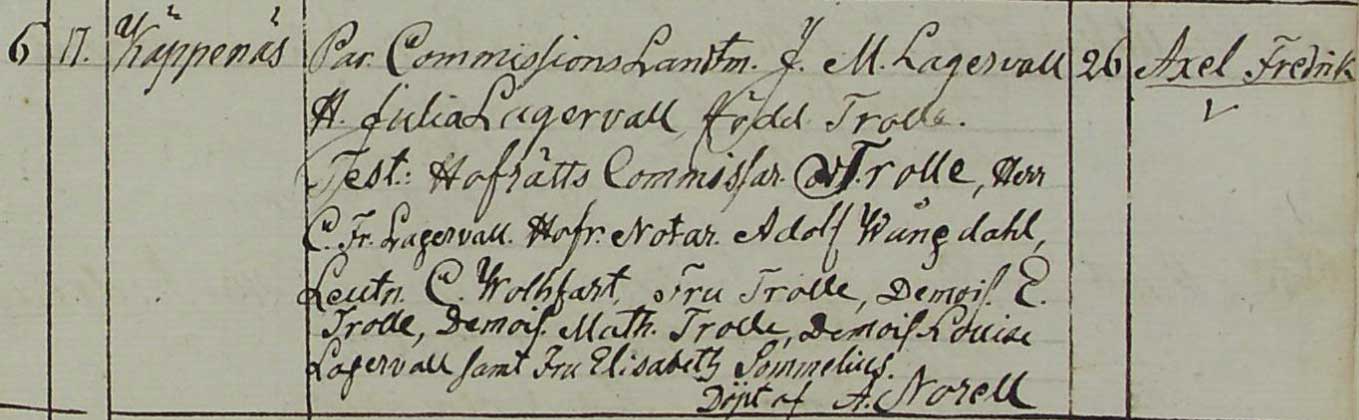 6 17. Käppenäs Par. Commissions Landtm. J. M. Lagervall 26 Axel Fredrik
H. Julia Lagervall, född Trolle.
Test.: Hofrätts Commissar. Trolle, Herr
C. Fr. Lagervall. Hofr. Notar. Adolf Wångdahl,
Leutn. C. Wolhfart, Fru Trolle, Demois. E.
Trolle, Demois. Math. Trolle, Demois Louise
Lagervall samt Fru Elisabeth Sommelius.
Döpt af A. Norell